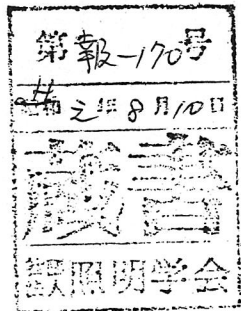 第報-170号
H元年8月10日
蔵書
照明学会